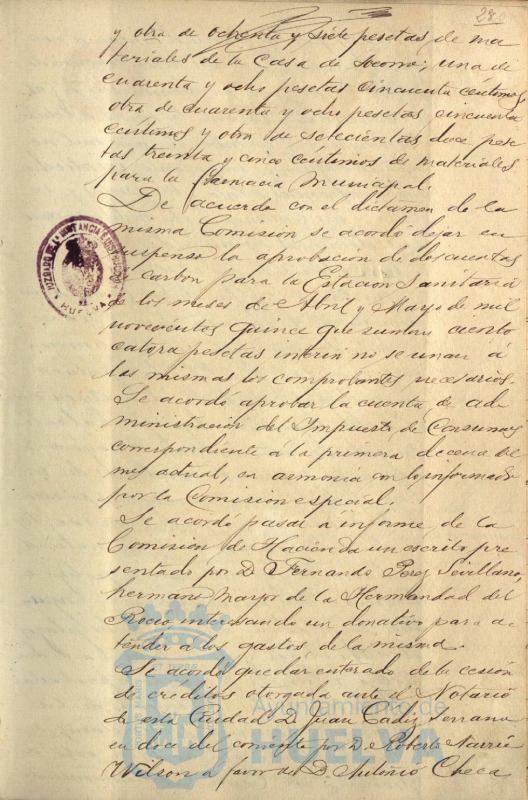 28
y otra de ochenta y siete pesetas de ma
teriales de la Casa de Socorro; una de
cuarenta y ocho pesetas cincuenta céntimos,
otra de cuarenta y ocho pesetas cincuenta
céntimos y otra de setecientas doce pese
tas treinta y cinco céntimos de materiales
para la farmacia municipal.
De acuerdo con el dictamen de la
misma Comisión se acordó dejar en
suspenso la aprobación de dos cuentas
carbon para la Estación Sanitaria
de los meses de Abril y Mayo de mil
novecientos quince que suman ciento
catorce pesetas interin no se unan á
las mismas los comprobantes necesarios.
Se acordó aprobar la cuenta de ad
ministración del Impuesto de Consumos
correspondiente á la primera decena del
mes actual, en armonía con lo informado
por la Comisión especial.
Se acordó pasar á informe de la
Comisión de Hacienda un escrito pre
sentado por D. Fernando Perez Sevillano,
hermano mayor de la Hermandad del
Rocio interesando un donativo para a
tender a los gastos de la misma.
Se acordó quedar enterado de la cesión
de creditos otorgada ante el Notario
de esta Ciudad D. Juan Cadiz Serrano
en doce del corriente por D. Roberto
Wilson a favor de D. Antonio Checa
JUZGADO DE 1ª INSTANCIA E INSTRUCCION
HUELVA
Ayuntamiento de
HUELVA